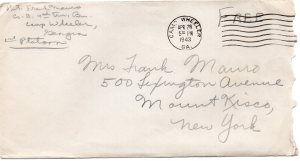 Pvt. Frank Mauro
Co. B. 4th Trn. Bn.
Camp Wheeler,
Georgia
1st Platoon
CAMP WHEELER
APR 28
5 PM
1943
GA.
FREE
Mrs Frank Mauro
500 Lexington Avenue
Mount Kisco,
New York